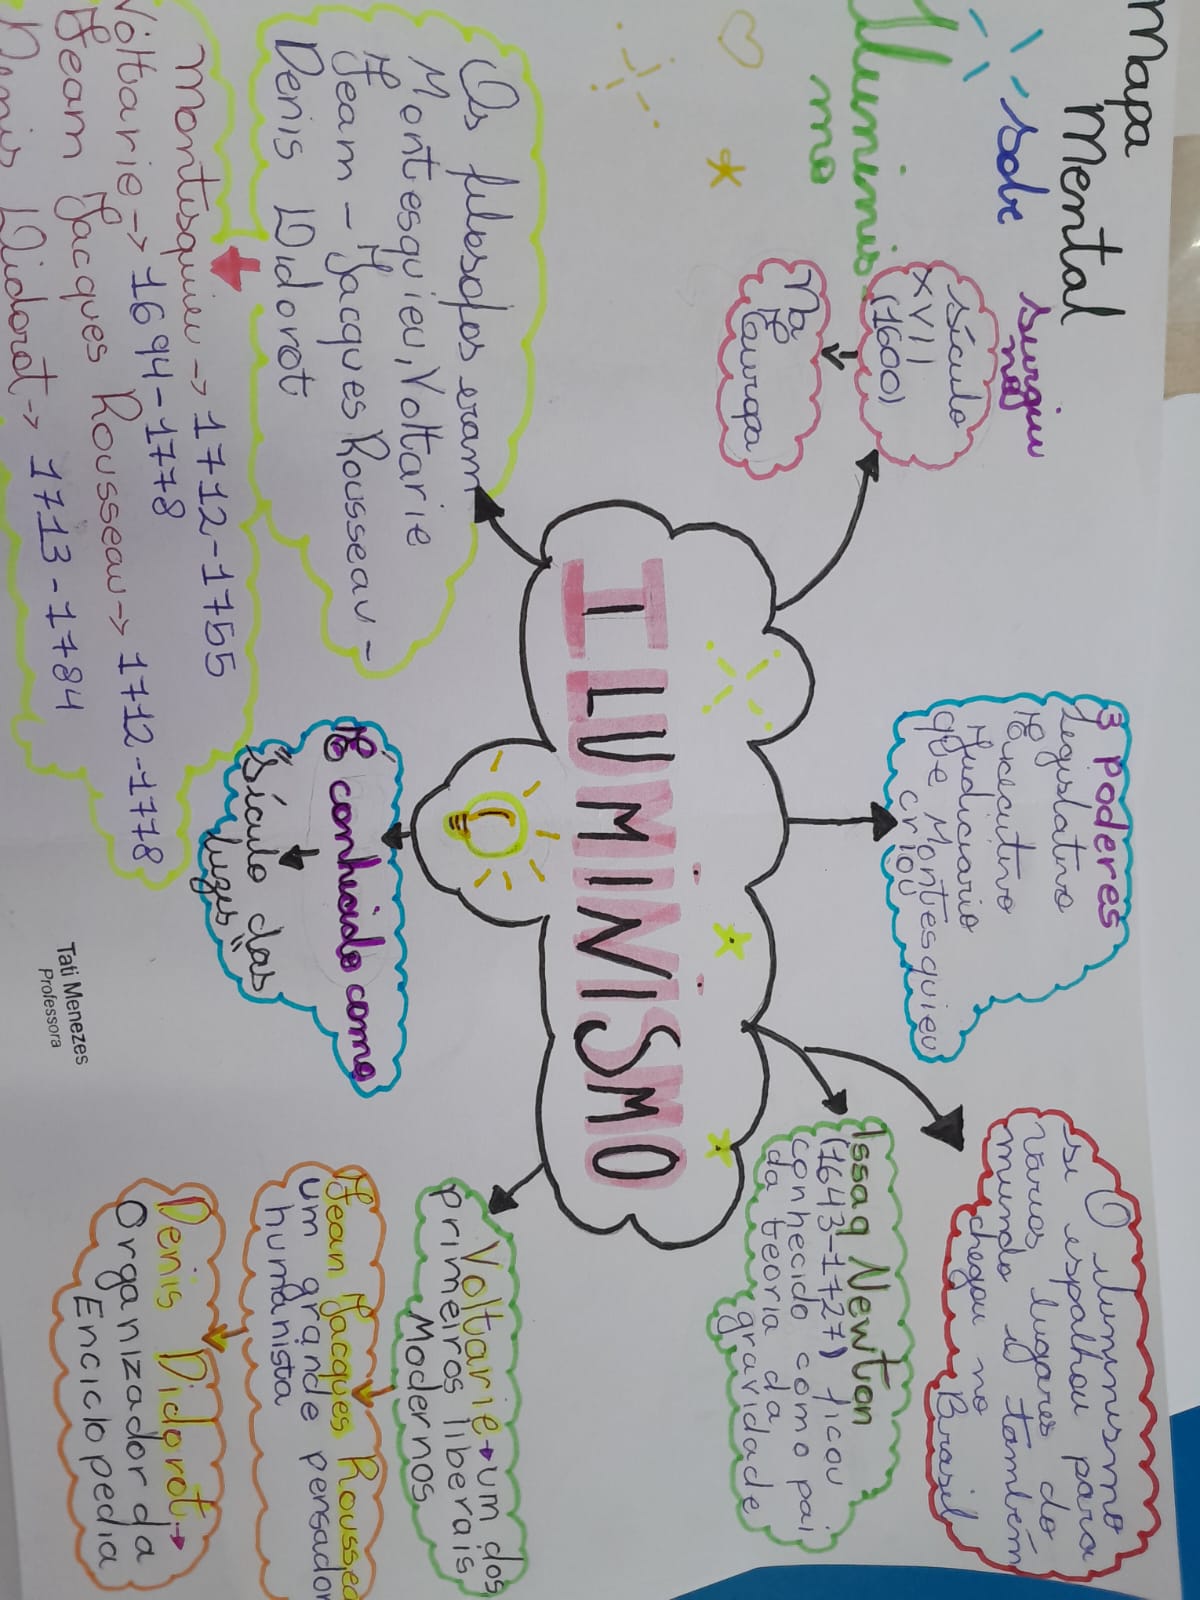 Mapa
Mental
sobre
Iluminis
mo
surgiu
no
século
XVII
(1600)
Na
Europa
3 poderes
Legislativo
Executivo
Judiciario
que Montesquieu
criou
O iluminismo
se espalhou para
varios lugares do
mundo e também
chegou no
Brasil
Issaq Newton
(1643-1727) ficou
conhecido como pai
da teoria da
gravidade
ILUMINISMO
Os filosofos eram
Montesquieu, Voltarie
Jeam-Jacques Rousseau-
Denis Didorot
Montisquieu → 1712-1755
Voltarie → 1694-1778
Jeam Jacques Rousseau → 1712-1778
Denis Didorot → 1713-1784
É conhecido como
"Século das
luzes"
Voltarie → um dos
primeiros liberais
Modernos
Jean Jacques Roussea
um grande pensador
humanista
Denis Didorot →
Organizador da
Enciclopedia
Tati Menezes
Professora